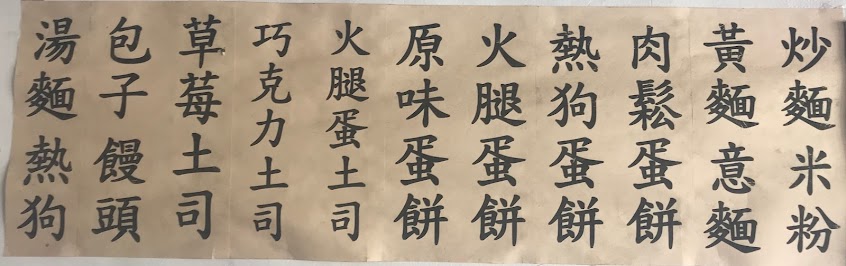 炒麵米粉
黃麵意麵
肉鬆蛋餅
熱狗蛋餅
火腿蛋餅
原味蛋餅
火腿蛋土司
巧克力土司
草莓土司
包子饅頭
湯麵熱狗